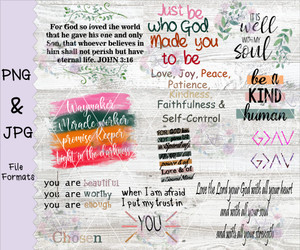 For God so loved the world
that he gave his one and only
Son, that whoever believes in
him shall not perish but have
eternal life. JOHN 3:16
Just be
who God
Made you
to be
IT IS
well
WITH MY
SOUL
PNG
&
JPG
File
Formats
Love, Joy, Peace,
Patience,
Kindness,
Faithfulness &
Self-Control
be a
KIND
human
Waymaker
Miracle worker
promise Keeper
Light in the darkness
you are beautiful
you are worthy
you are enough
Chosen
when I am afraid
I put my trust in
YOU
Love the Lord your God with all your heart
and with all your soul
and with all your strength